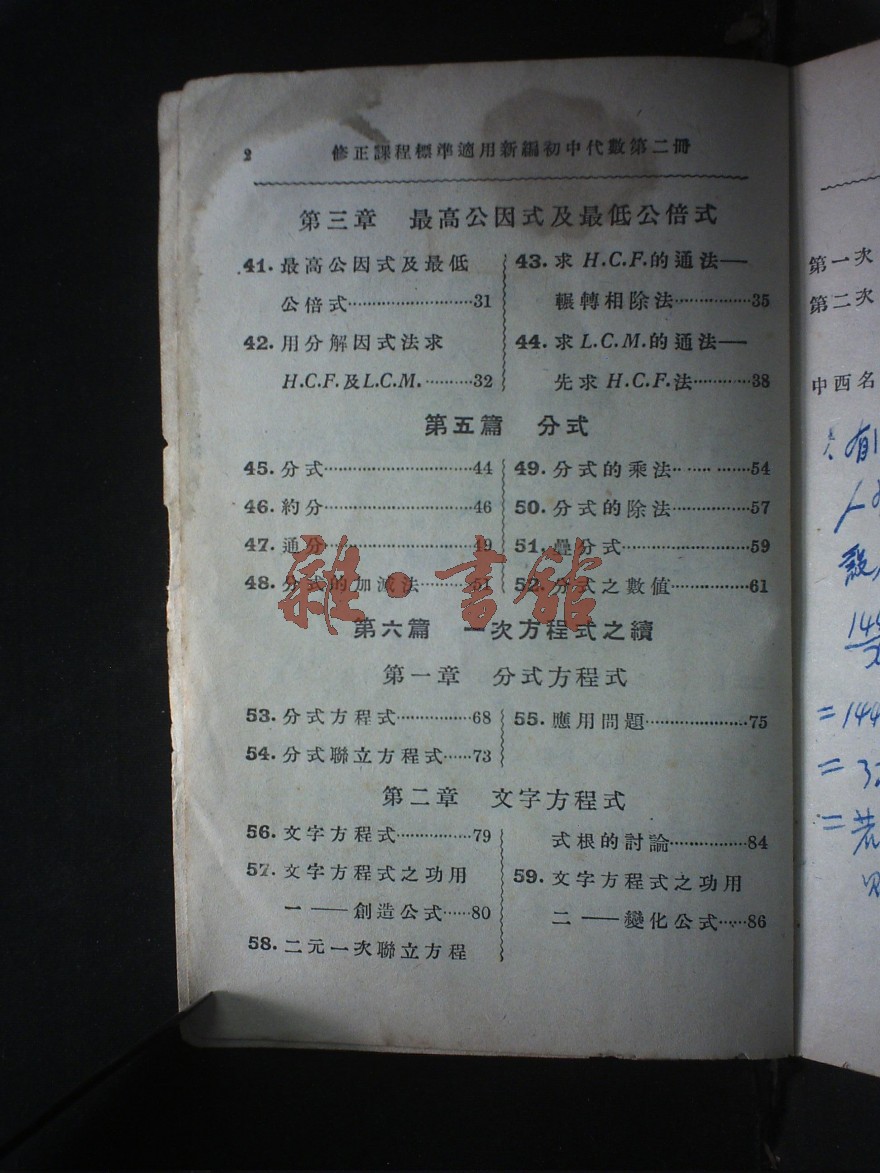 2　修正課程標準適用新編初中代數第二冊
第三章　最高公因式及最低公倍式
41. 最高公因式及最低
公倍式························31
42. 用分解因式法求
H.C.F.及L.C.M.··········32
43. 求 H.C.F.的通法——
輾轉相除法···············35
44. 求L.C.M.的通法——
先求H.C.F.法············38
第五篇　分式
45. 分式·····························44
46. 約分·····························46
47. 通分·····························49
48. 分式的加減法·········51
49. 分式的乘法···············54
50. 分式的除法···············57
51. 疊分式·························59
52. 分式之數值···············61
雜·書館
第六篇　一次方程式之續
第一章　分式方程式
53. 分式方程式··············68
54. 分式聯立方程式······73
55. 應用問題····················75
第二章　文字方程式
56. 文字方程式···············79
57. 文字方程式之功用
一——創造公式······80
58. 二元一次聯立方程
式根的討論···············84
59. 文字方程式之功用
二——變化公式······86
第一次
第二次
中西名
有
設
144
=144
=
=